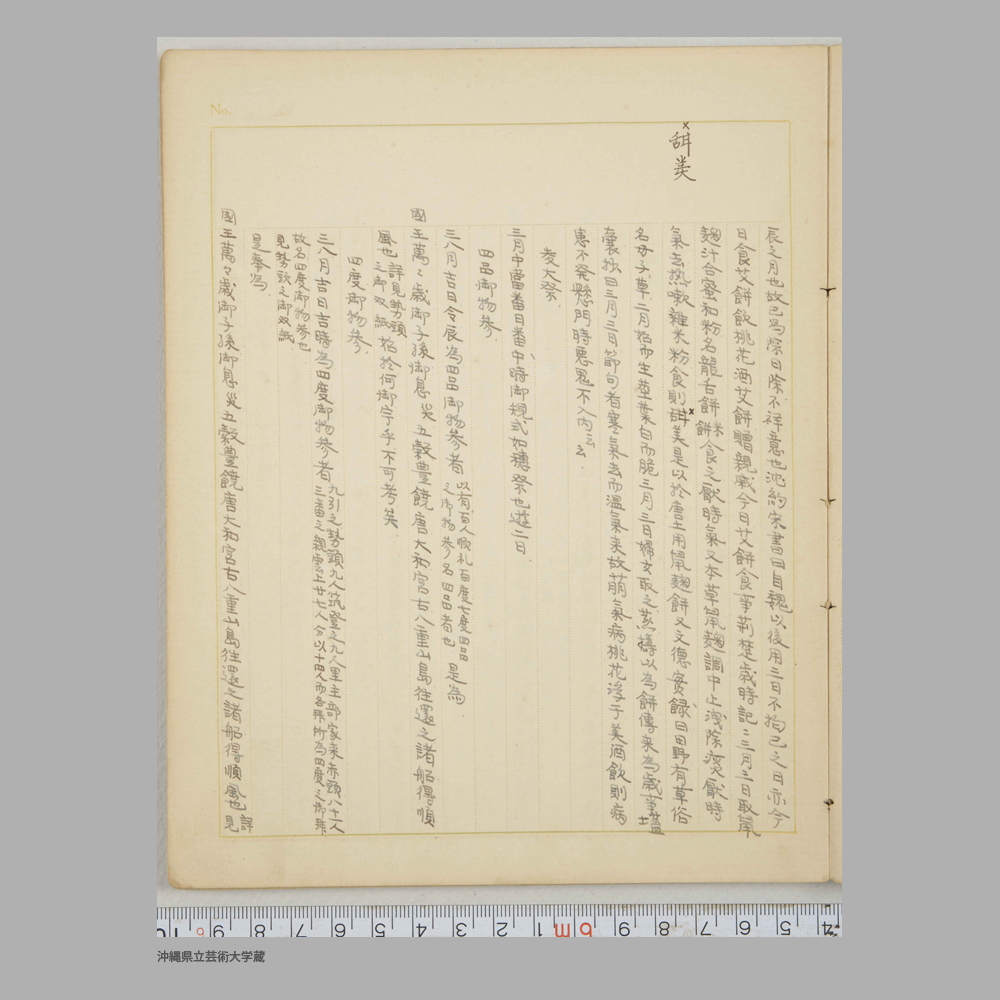 No.
甜美
辰之月也故已為除日除不祥意也沈約宋書曰自魏以後用三日不拘已之日亦今
日食艾餅飲桃花酒艾餅贈親戚今日艾餅食事荊楚歳時記二三月三日取鼠
麹汁合蜜和粉名龍舌餅餅食之厭時氣又本草鼠麹調中上洩除痰厭時
氣去熱嗽雜米粉食則甜美是以於唐土用鼠麹餅又文德實録曰田野有草俗
名母子草二月始而生莖葉白而脆三月三日婦女取之蒸擣以為餅傳来為歳事
嚢抄曰三月三日節句者寒氣去而温氣来故萠氣病桃花浮于美酒飲則病
患不発懸門時悪鬼不入内云云
麦大祭
三月中當番日番中時御規式如穂祭也遊二日
四品御物参
三八月吉日令辰為四品御物参者以有百人順礼百度七度四品之御物参名四品者也是為
國王萬々歳御子孫御息災五穀豊饒唐大和宮古八重山島往還之諸船得順
風也詳見勢頭之御双紙始於何御宇乎不可考矣
四度御物参
三八月吉日吉時為四度御物参者九引之勢頭九人筑登之九人里主部家来赤頭八十一人
三番之親雲上廿七人分以十四人而各拝所為四度之御拝
故名四度御物参也
見勢頭之御双紙
是奉為
國王萬々歳御子孫御息災五穀豊饒唐大和宮古八重山島往還之諸船得順風也詳見
沖縄県立芸術大学蔵